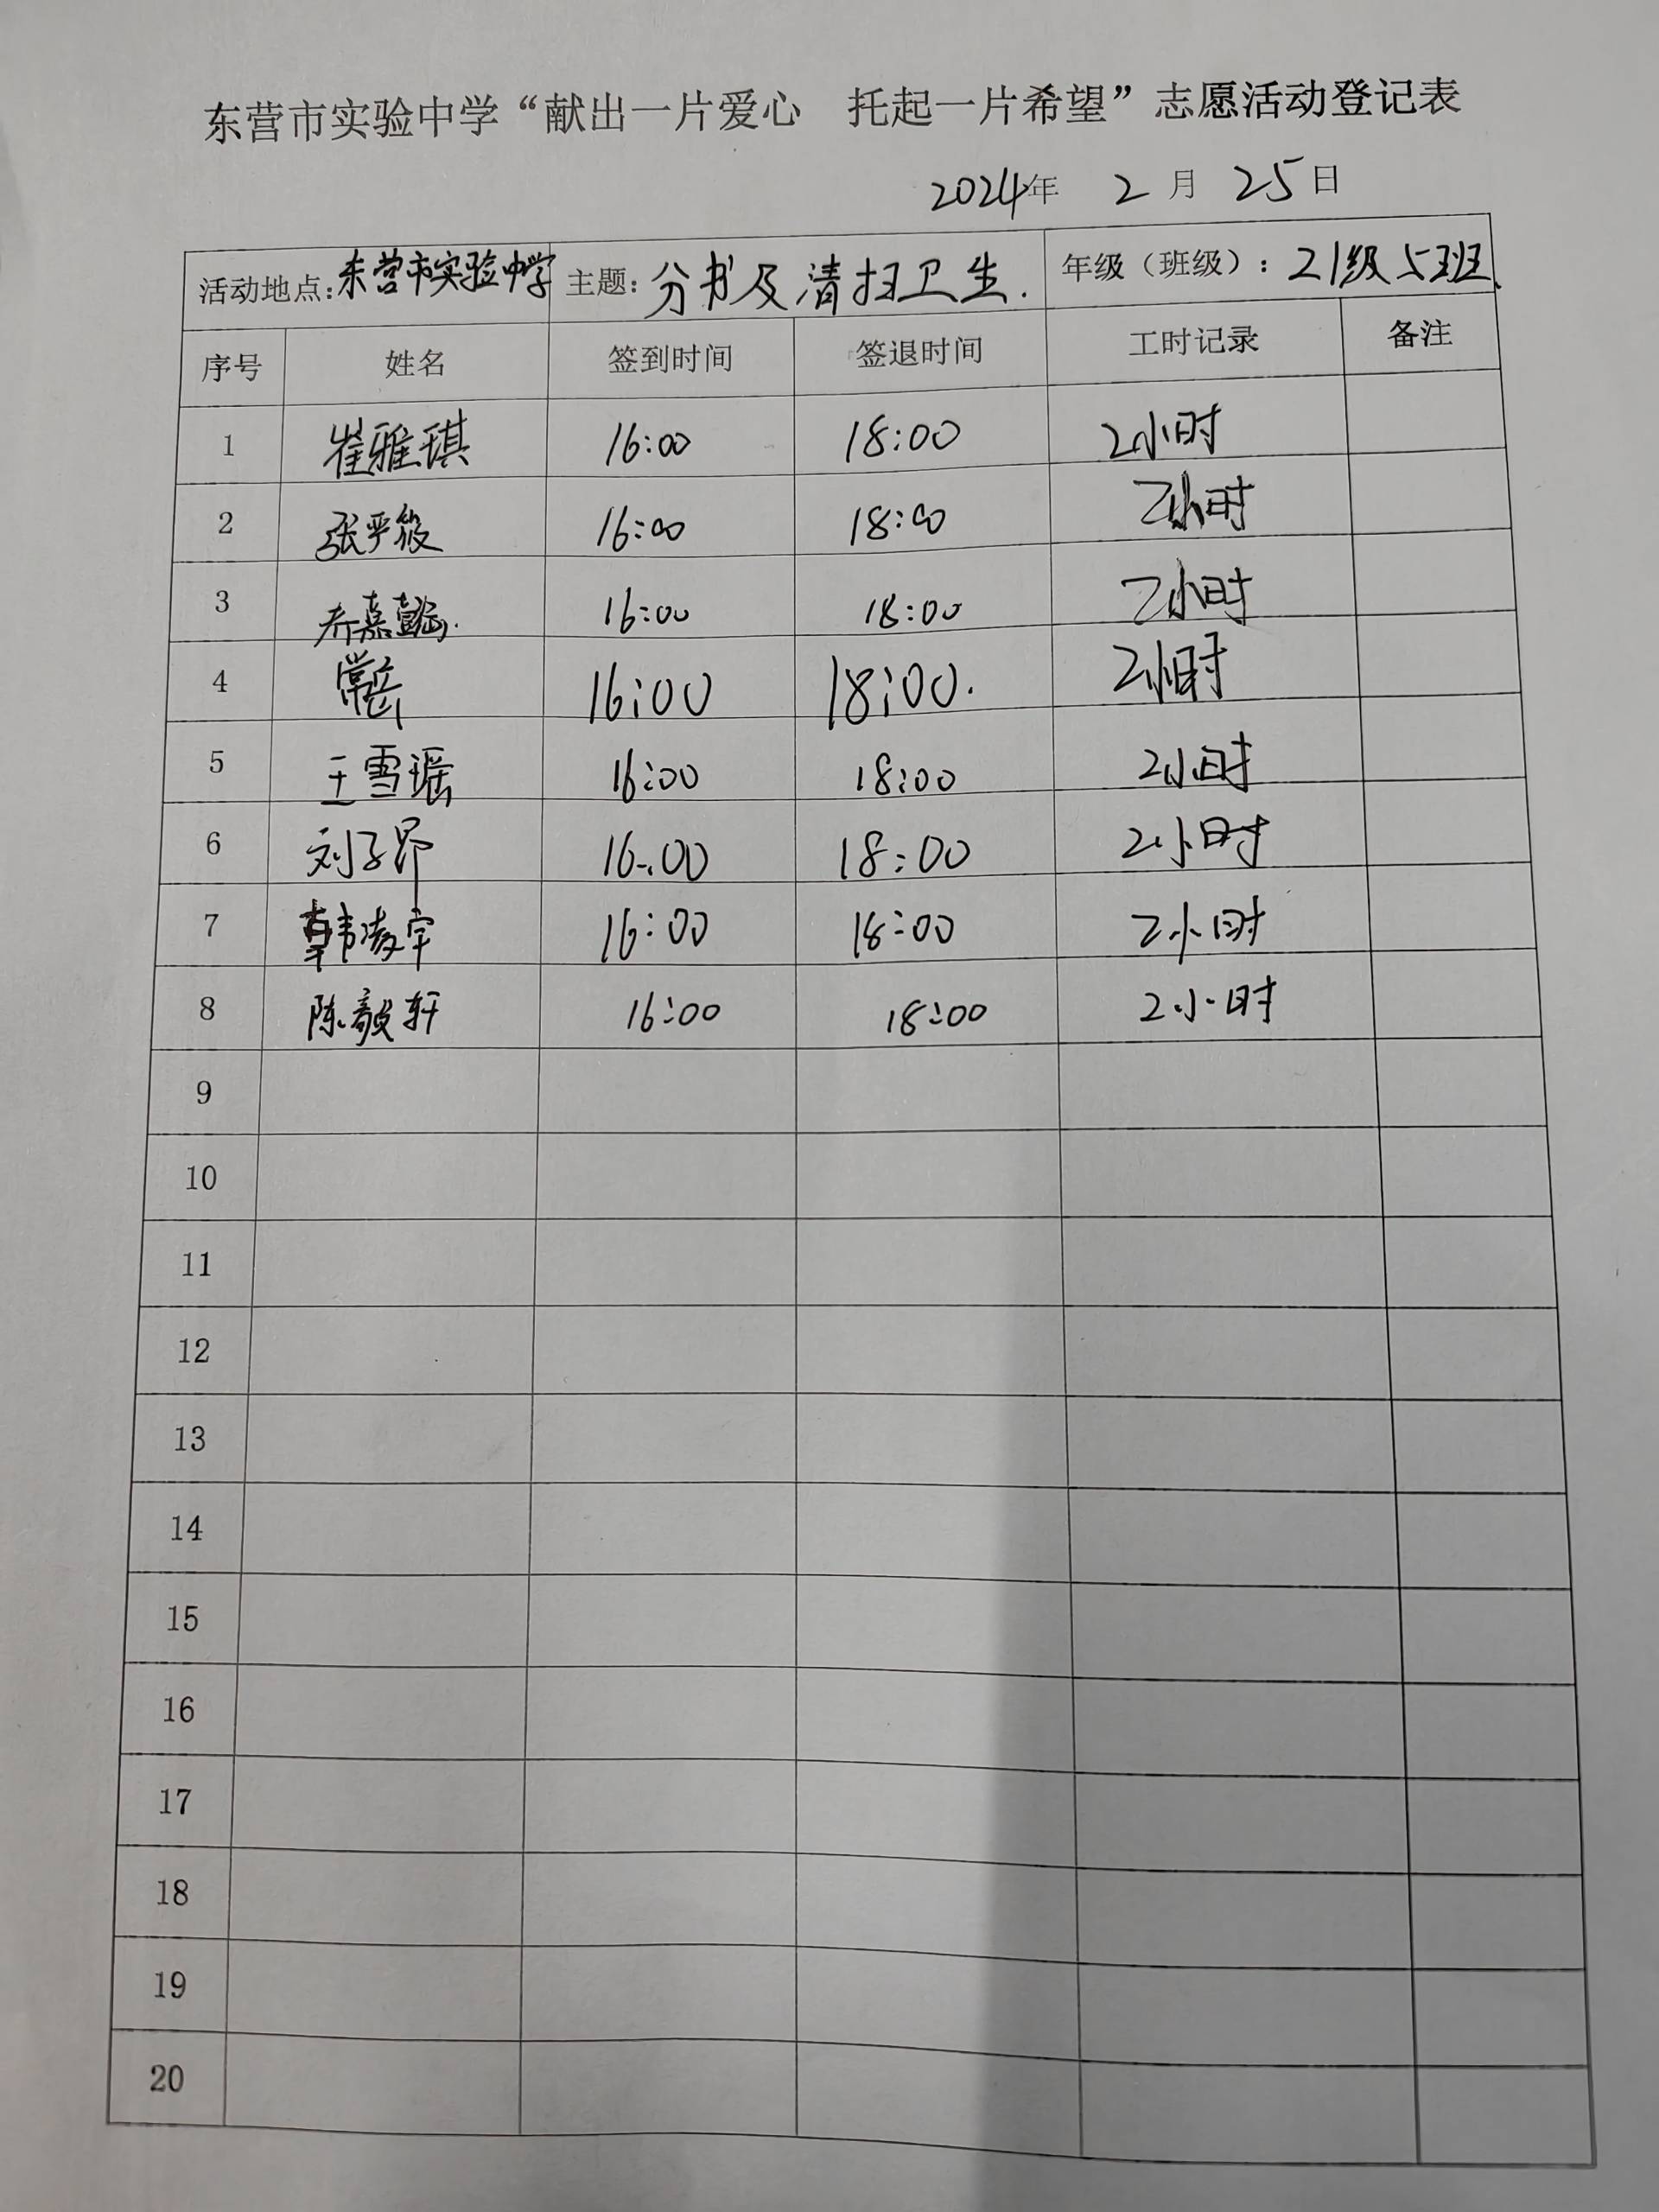 东营市实验中学“献出一片爱心 托起一片希望”志愿活动登记表
2024年 2 月 25日
活动地点:东营市实验中学 主题:分书及清扫卫生. 年级（班级）:21级5班
序号 姓名 签到时间 签退时间 工时记录 备注
1 崔雅琪 16:00 18:00 2小时
2 张 16:00 18:00 2小时
3 乔嘉 16:00 18:00 2小时
4 常岳 16:00 18:00. 2小时
5 王雪瑶 16:00 18:00 2小时
6 刘子昂 16:00 18:00 2小时
7 韩凌宇 16:00 18:00 2小时
8 陈毅轩 16:00 18:00 2小时
9
10
11
12
13
14
15
16
17
18
19
20